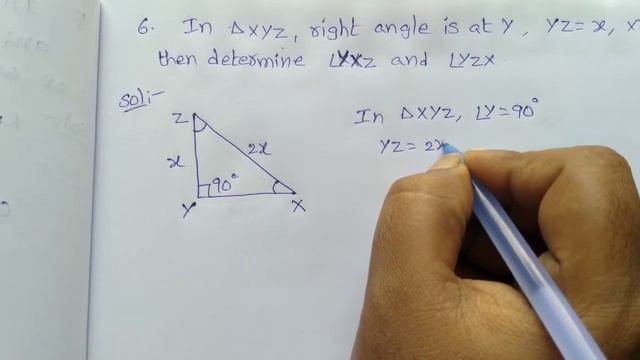 6. In ΔXYZ, right angle is at Y, YZ = x, X
then determine ∠YXZ and ∠YZX.
Sol:-
Z
x
2x
90°
Y
X
In ΔXYZ, ∠Y = 90°
YZ = 2x